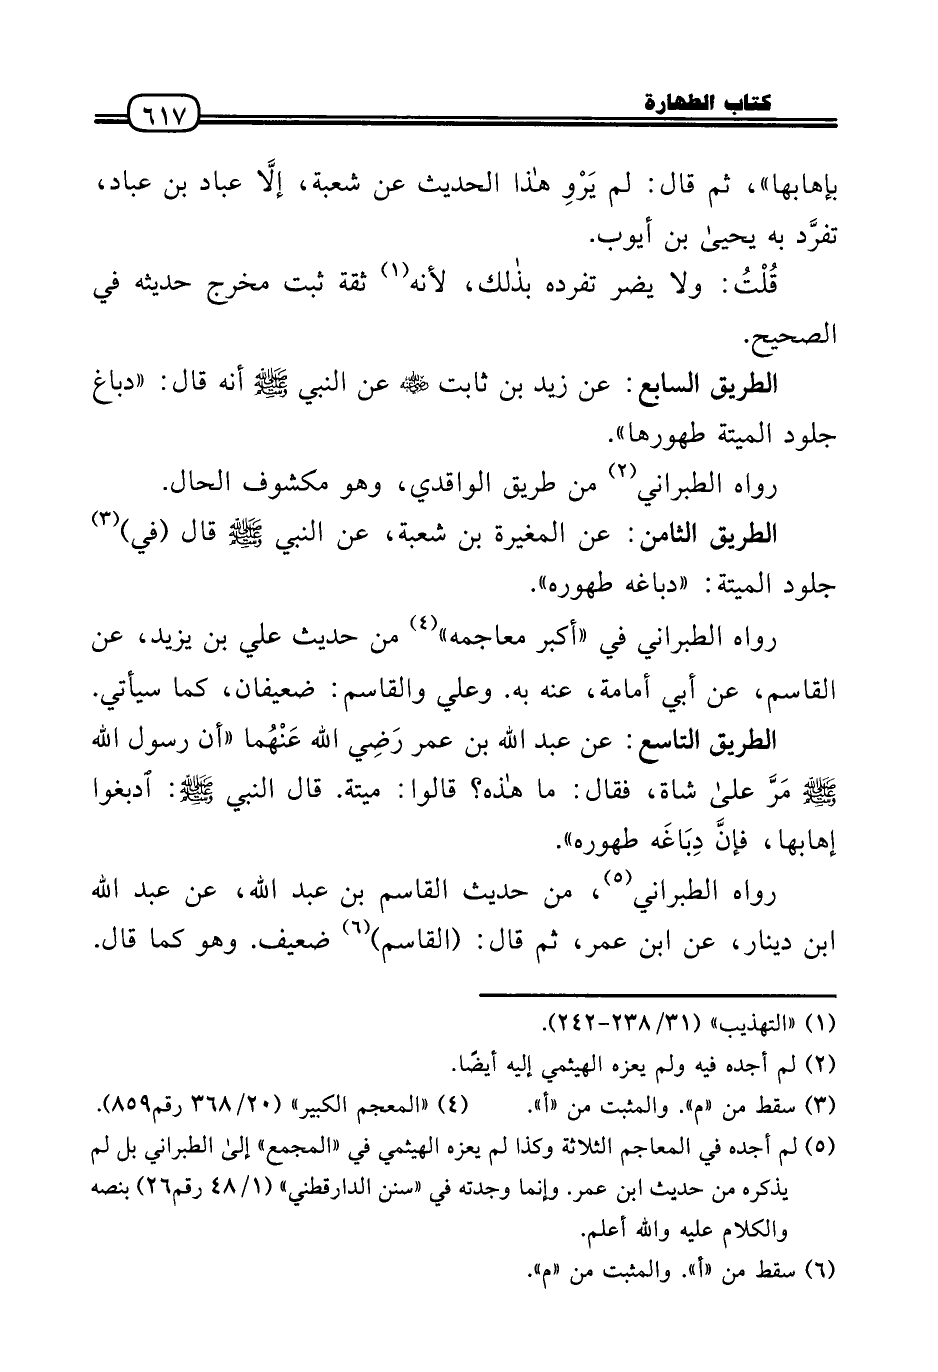 كتاب الطهارة
٦١٧
بإهابها»، ثم قال: لم يَرْوِ هذا الحديث عن شعبة، إلَّا عباد بن عباد،
تفرَّد به يحيىٰ بن أيوب.
قُلْتُ: ولا يضر تفرده بذٰلك، لأنه(١) ثقة ثبت مخرج حديثه في
الصحيح.
الطريق السابع: عن زيد بن ثابت رضي الله عنه عن النبي ﷺ أنه قال: «دباغ
جلود الميتة طهورها».
رواه الطبراني(٢) من طريق الواقدي، وهو مكشوف الحال.
الطريق الثامن: عن المغيرة بن شعبة، عن النبي ﷺ قال (في)(٣)
جلود الميتة: «دباغه طهوره».
رواه الطبراني في «أكبر معاجمه»(٤) من حديث علي بن يزيد، عن
القاسم، عن أبي أمامة، عنه به. وعلي والقاسم: ضعيفان، كما سيأتي.
الطريق التاسع: عن عبد الله بن عمر رَضِي الله عَنْهُما «أن رسول الله
ﷺ مَرَّ علىٰ شاة، فقال: ما هٰذه؟ قالوا: ميتة. قال النبي ﷺ: ٱدبغوا
إهابها، فإنَّ دِبَاغَه طهوره».
رواه الطبراني(٥)، من حديث القاسم بن عبد الله، عن عبد الله
ابن دينار، عن ابن عمر، ثم قال: (القاسم)(٦) ضعيف. وهو كما قال.
(١) «التهذيب» (٣١/ ٢٣٨-٢٤٢).
(٢) لم أجده فيه ولم يعزه الهيثمي إليه أيضًا.
(٣) سقط من «م». والمثبت من «أ». (٤) «المعجم الكبير» (٢٠/ ٣٦٨ رقم٨٥٩).
(٥) لم أجده في المعاجم الثلاثة وكذا لم يعزه الهيثمي في «المجمع» إلىٰ الطبراني بل لم
يذكره من حديث ابن عمر. وإنما وجدته في «سنن الدارقطني» (١/ ٤٨ رقم٢٦) بنصه
والكلام عليه والله أعلم.
(٦) سقط من «أ». والمثبت من «م».